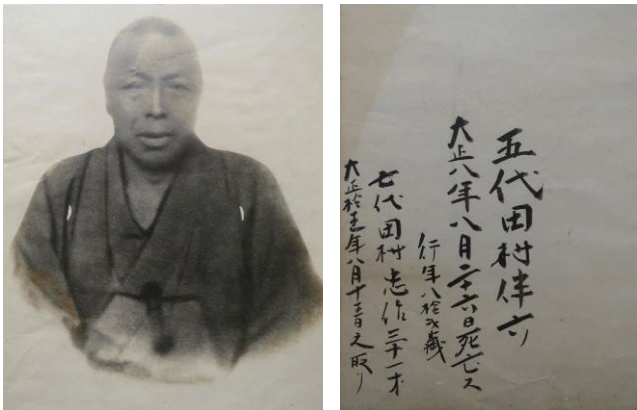 五代田村伴六
大正八年八月二十六日死亡ス
行年八拾弐歳
七代田村忠作三十一才
大正拾年八月十三日之取リ